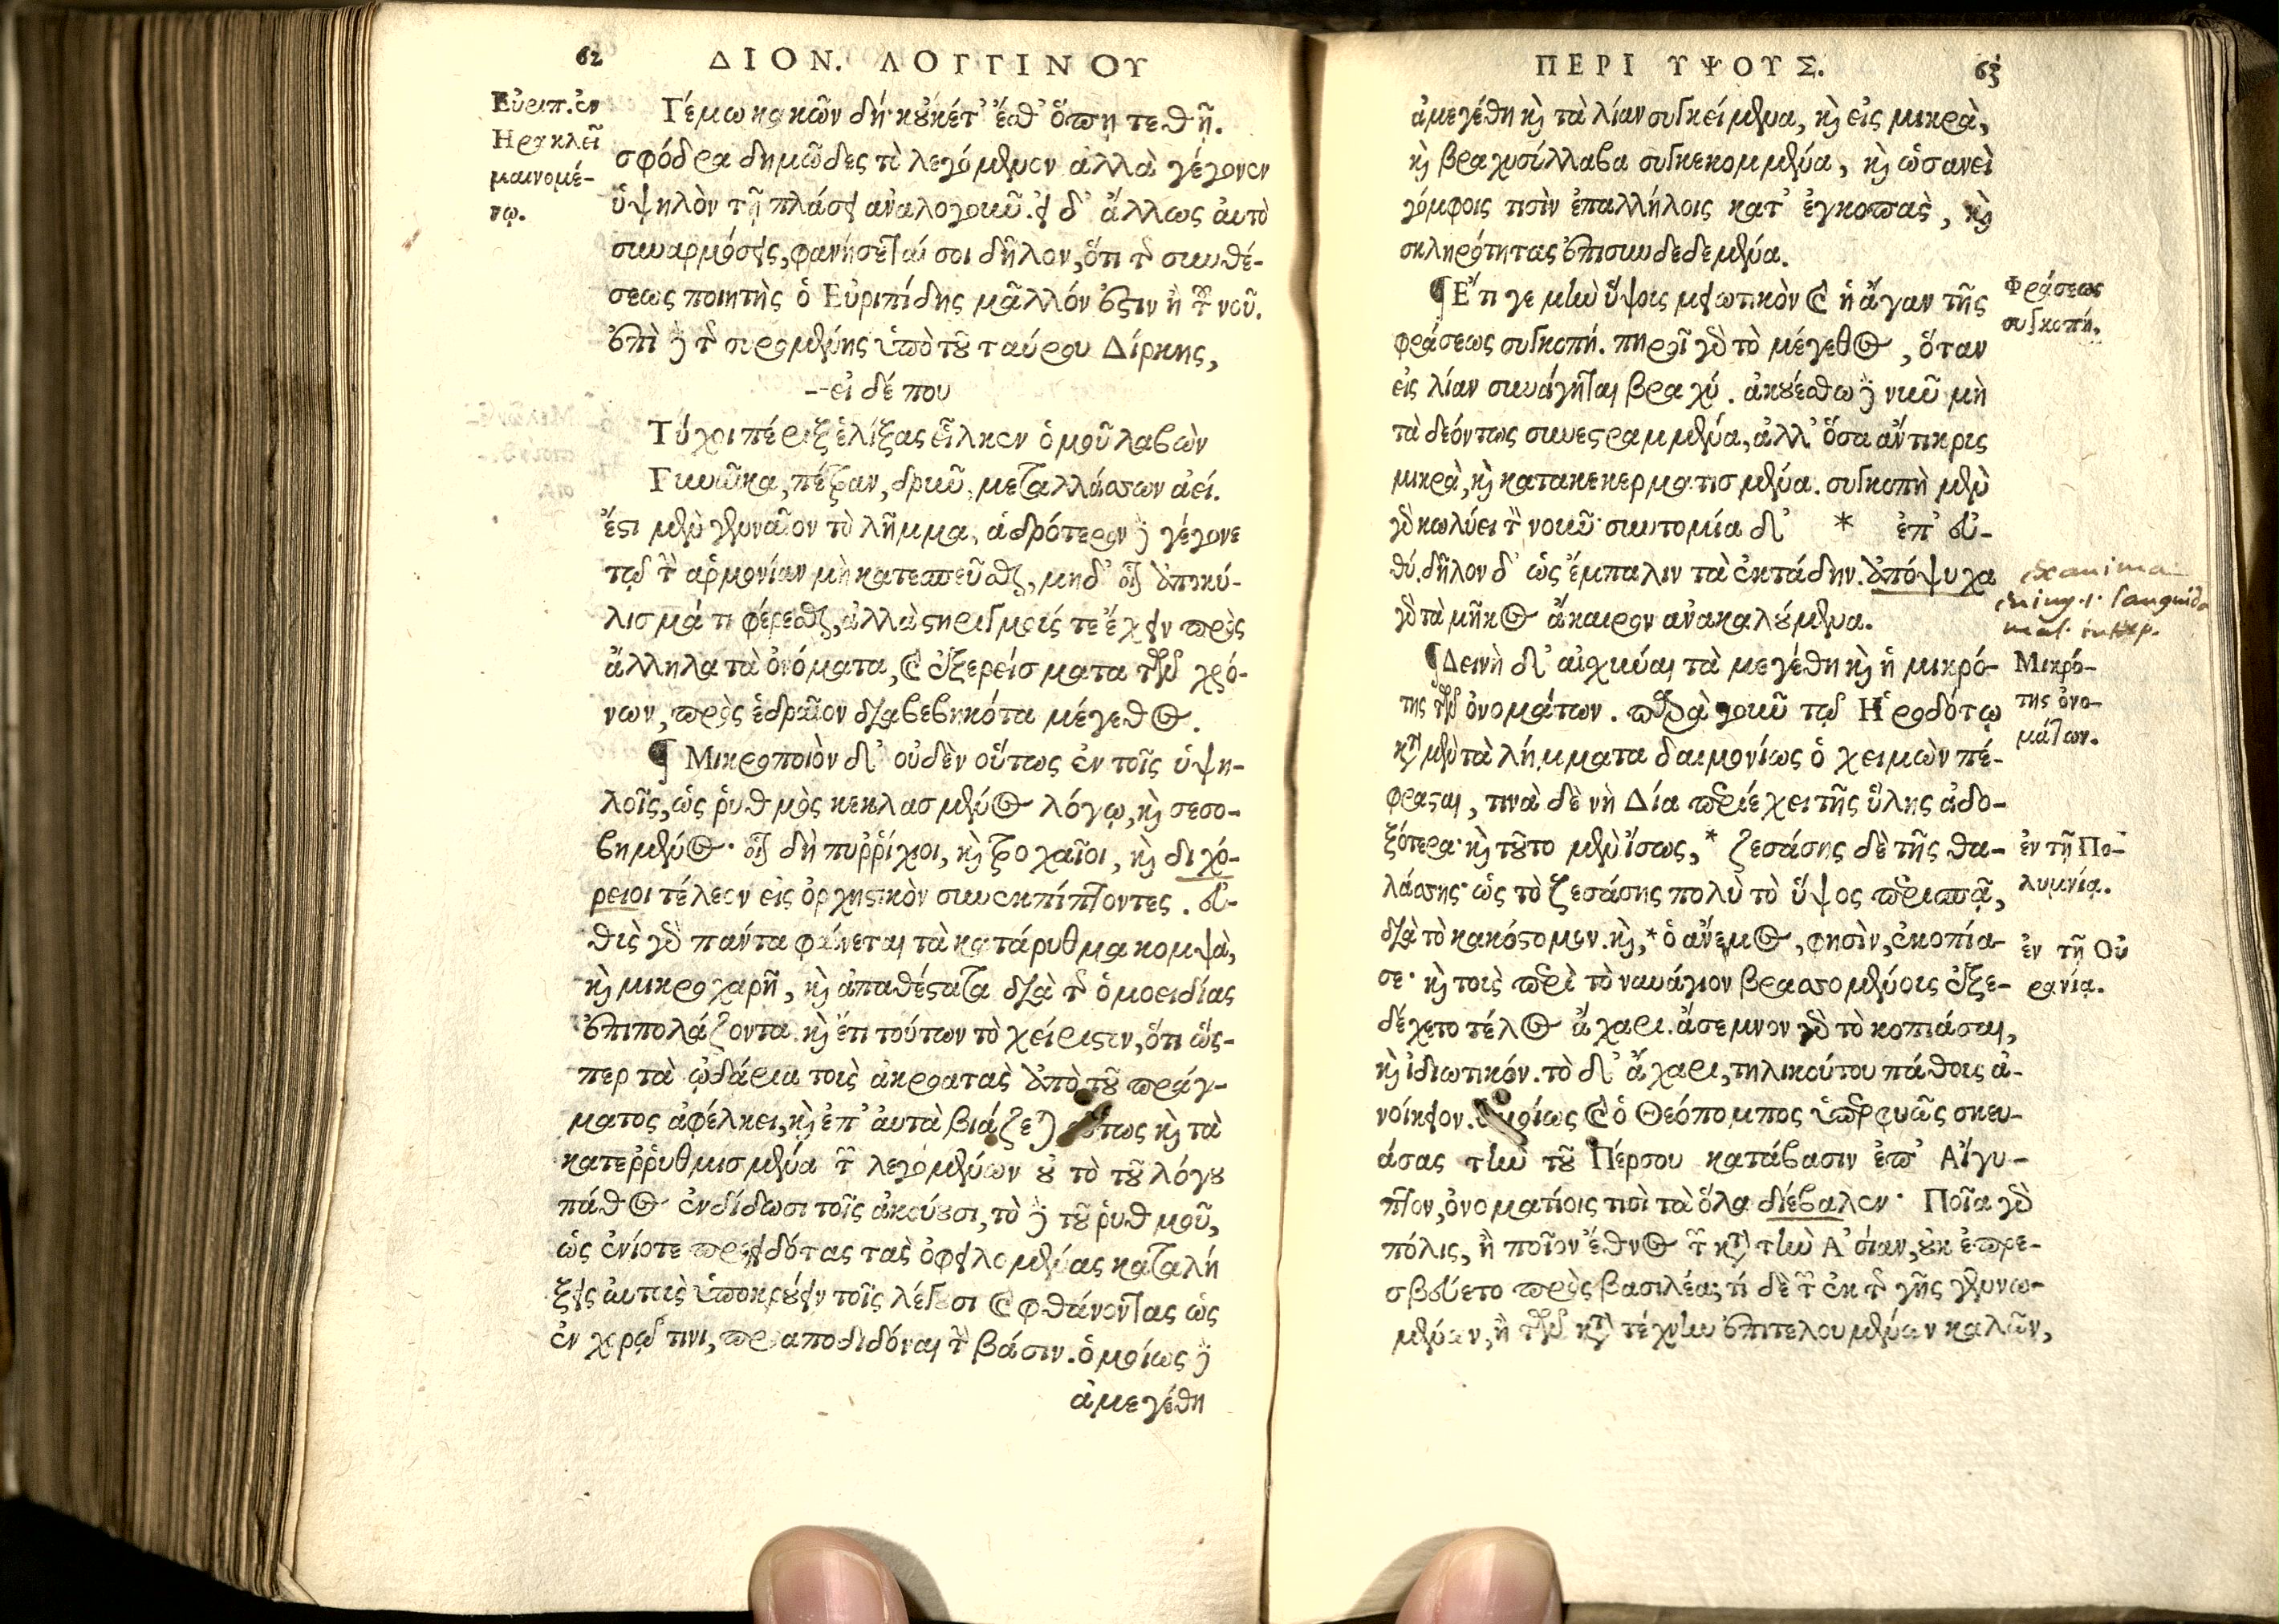 62 ΔΙΟΝ. ΛΟΓΓΙΝΟΥ
Εὐριπ. ἐν
Ηρακλεῖ
μαινομέ-
νῳ.
Γέμω κακῶν δή· κοὐκέτ' ἔσθ' ὅπη τεθῇ.
σφόδρα δημῶδες τὸ λεγόμενον ἀλλὰ γέγονεν
ὑψηλὸν τῇ πλάσει ἀναλογοῦν. εἰ δ' ἄλλως ἀυτὸ
συναρμόσεις, φανήσεταί σοι δῆλον, ὅτι τῆς συνθέ-
σεως ποιητὴς ὁ Εὐριπίδης μᾶλλόν ἐστιν ἢ τοῦ νοῦ.
ἐπὶ δὲ τῆς συρομένης ὑπὸ τοῦ ταύρου Δίρκης,
--εἰ δέ που
Τύχοι πέριξ ἑλίξας εἷλκεν ὁμοῦ λαβὼν
Γυναῖκα, πέτραν, δρῦν, μεταλλάσσων ἀεί.
ἔστι μὲν γενναῖον τὸ λῆμμα, ἁδρότερον δὲ γέγονε
τῷ τὴν ἁρμονίαν μὴ κατεσπεῦσθαι, μηδ' οἷον ἀποκύ-
λισμά τι φέρεσθαι, ἀλλὰ στηριγμούς τε ἔχειν πρὸς
ἄλληλα τὰ ὀνόματα, καὶ ἐξερείσματα τῶν χρό-
νων, πρὸς ἑδραῖον διαβεβηκότα μέγεθος.
¶ Μικροποιὸν δ' οὐδὲν οὕτως ἐν τοῖς ὑψη-
λοῖς, ὡς ῥυθμὸς κεκλασμένος λόγῳ, καὶ σεσο-
βημένος· οἷον δὴ πυῤῥίχιοι, καὶ τροχαῖοι, καὶ διχό-
ρειοι τέλεον εἰς ὀρχηστικὸν συνεκπίπτοντες. εὐ-
θὺς γὰρ πάντα φαίνεται τὰ κατάρυθμα κομψὰ,
καὶ μικροχαρῆ, καὶ ἀπαθέστατα διὰ τῆς ὁμοειδίας
ἐπιπολάζοντα. καὶ ἔτι τούτων τὸ χείριστον, ὅτι ὥς-
περ τὰ ᾠδάρια τοὺς ἀκροατὰς ἀπὸ τοῦ πράγ-
ματος ἀφέλκει, καὶ ἐπ' ἀυτὰ βιάζεται οὕτως καὶ τὰ
κατεῤῥυθμισμένα τῶν λεγομένων οὐ τὸ τοῦ λόγου
πάθος ἐνδίδωσι τοῖς ἀκούουσι, τὸ δὲ τοῦ ῥυθμοῦ,
ὡς ἐνίοτε προειδότας τὰς ὀφειλομένας καταλή
ξεις ἀυτοὺς ὑποκρούειν τοῖς λέγουσι καὶ φθάνοντας ὡς
ἐν χορῷ τινι, προαποδιδόναι τὴν βάσιν. ὁμοίως δὲ
ἀμεγέθη
ΠΕΡΙ ΥΨΟΥΣ. 63
ἀμεγέθη καὶ τὰ λίαν συγκείμενα, καὶ εἰς μικρὰ,
καὶ βραχυσύλλαβα συγκεκομμένα, καὶ ὡσανεὶ
γόμφοις τισὶν ἐπαλλήλοις κατ' ἐγκοπὰς, καὶ
σκληρότητας ἐπισυνδεδεμένα.
¶ Ἔτι γε μὴν ὕψους μειωτικὸν καὶ ἡ ἄγαν τῆς
φράσεως συγκοπή. πηροῖ γὰρ τὸ μέγεθος, ὅταν
εἰς λίαν συνάγηται βραχύ. ἀκουέσθω δὲ νῦν μὴ
τὰ δεόντως συνεστραμμένα, ἀλλ' ὅσα ἄντικρις
μικρὰ, καὶ κατακεκερματισμένα. συγκοπὴ μὲν
γὰρ κωλύει τὸν νοῦν· συντομία δ' * ἐπ' εὐ-
θύ. δῆλον δ' ὡς ἔμπαλιν τὰ ἐκτάδην. ἀπόψυχα
γὰρ τὰ μῆκος ἄκαιρον ἀνακαλούμενα.
Φράσεως
συγκοπή.
¶ Δεινὴ δ' αἰσχῦναι τὰ μεγέθη καὶ ἡ μικρό-
της τῶν ὀνομάτων. παρὰ γοῦν τῷ Ἡροδότῳ
κατὰ μὲν τὰ λήμματα δαιμονίως ὁ χειμὼν πέ-
φρασται, τινὰ δὲ νὴ Δία περιέχει τῆς ὕλης ἀδο-
ξότερα· καὶ τοῦτο μὲν ἴσως, * ζεσάσης δὲ τῆς θα-
λάσσης· ὡς τὸ ζεσάσης πολὺ τὸ ὕψος περισπᾷ,
διὰ τὸ κακόστομον. καὶ, * ὁ ἄνεμος, φησὶν, ἐκοπία-
σε· καὶ τοὺς περὶ τὸ ναυάγιον βρασσομένους ἐξε-
δέχετο τέλος ἄχαρι. ἄσεμνον γὰρ τὸ κοπιάσαι,
καὶ ἰδιωτικόν. τὸ δ' ἄχαρι, τηλικούτου πάθους ἀ-
νοίκειον. ὁμοίως καὶ ὁ Θεόπομπος ὑπερφυῶς σκευ-
άσας τὴν τοῦ Πέρσου κατάβασιν ἐπ' Αἴγυ-
πτον, ὀνοματίοις τισὶ τὰ ὅλα διέβαλεν· Ποῖα γὰρ
πόλις, ἢ ποῖον ἔθνος τῶν κατὰ τὴν Ἀσίαν, οὐκ ἐπρε-
σβεύετο πρὸς βασιλέα; τί δὲ τῶν ἐκ τῆς γῆς γεννω-
μένων, ἢ τῶν κατὰ τέχνην ἐπιτελουμένων καλῶν,
exanima
languida
Μικρό-
της ὀνο-
μάτων.
ἐν τῇ Πο-
λυμνίᾳ.
ἐν τῇ Οὐ
ρανίᾳ.